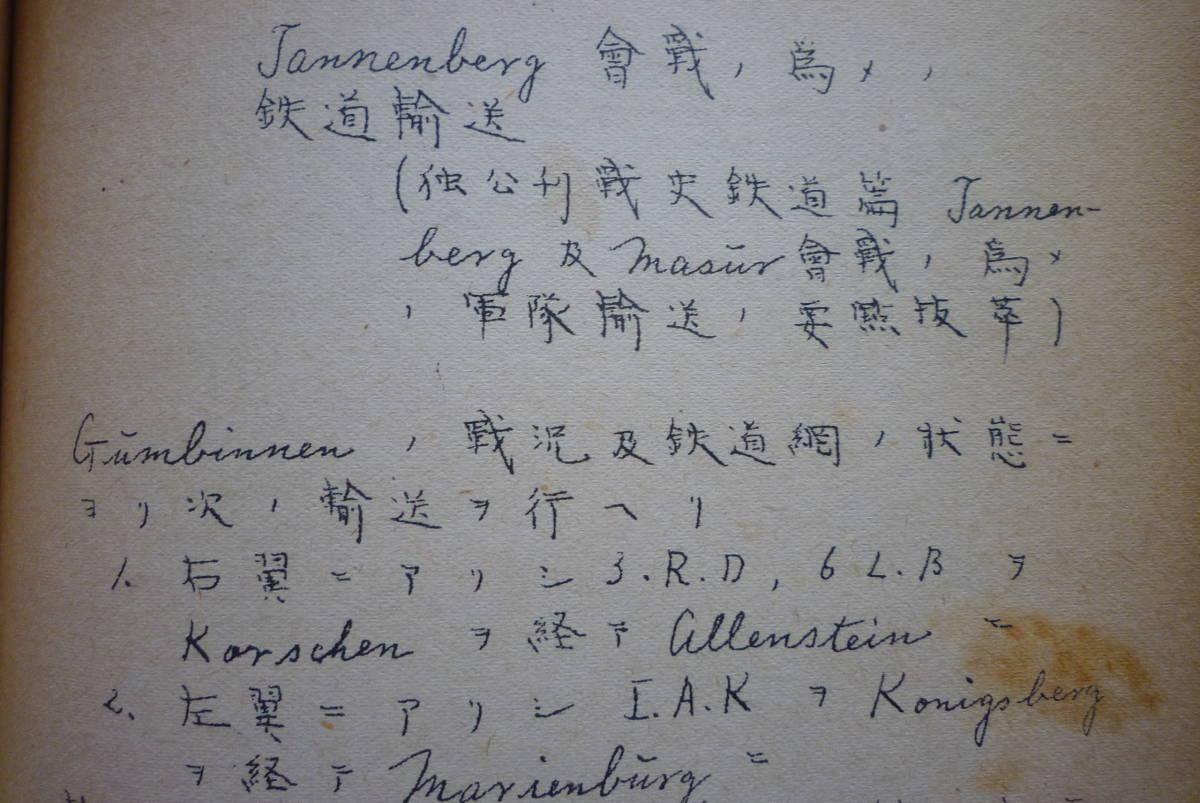 Tannenberg 會戰ノ爲メノ
鉄道輸送
(独公刊戰史鉄道篇 Tannen-
berg 及 Masūr 會戰ノ爲メ
ノ軍隊輸送ノ要點抜萃)
Gūmbinnen ノ戰況及鉄道網ノ状態ニ
ヨリ次ノ輸送ヲ行ヘリ
1. 右翼ニアリシ 3.R.D, 6 L.B ヲ
Korschen ヲ経テ Allenstein ニ
2. 左翼ニアリシ I.A.K ヲ Konigsberg
ヲ経テ Marienbūrg ニ